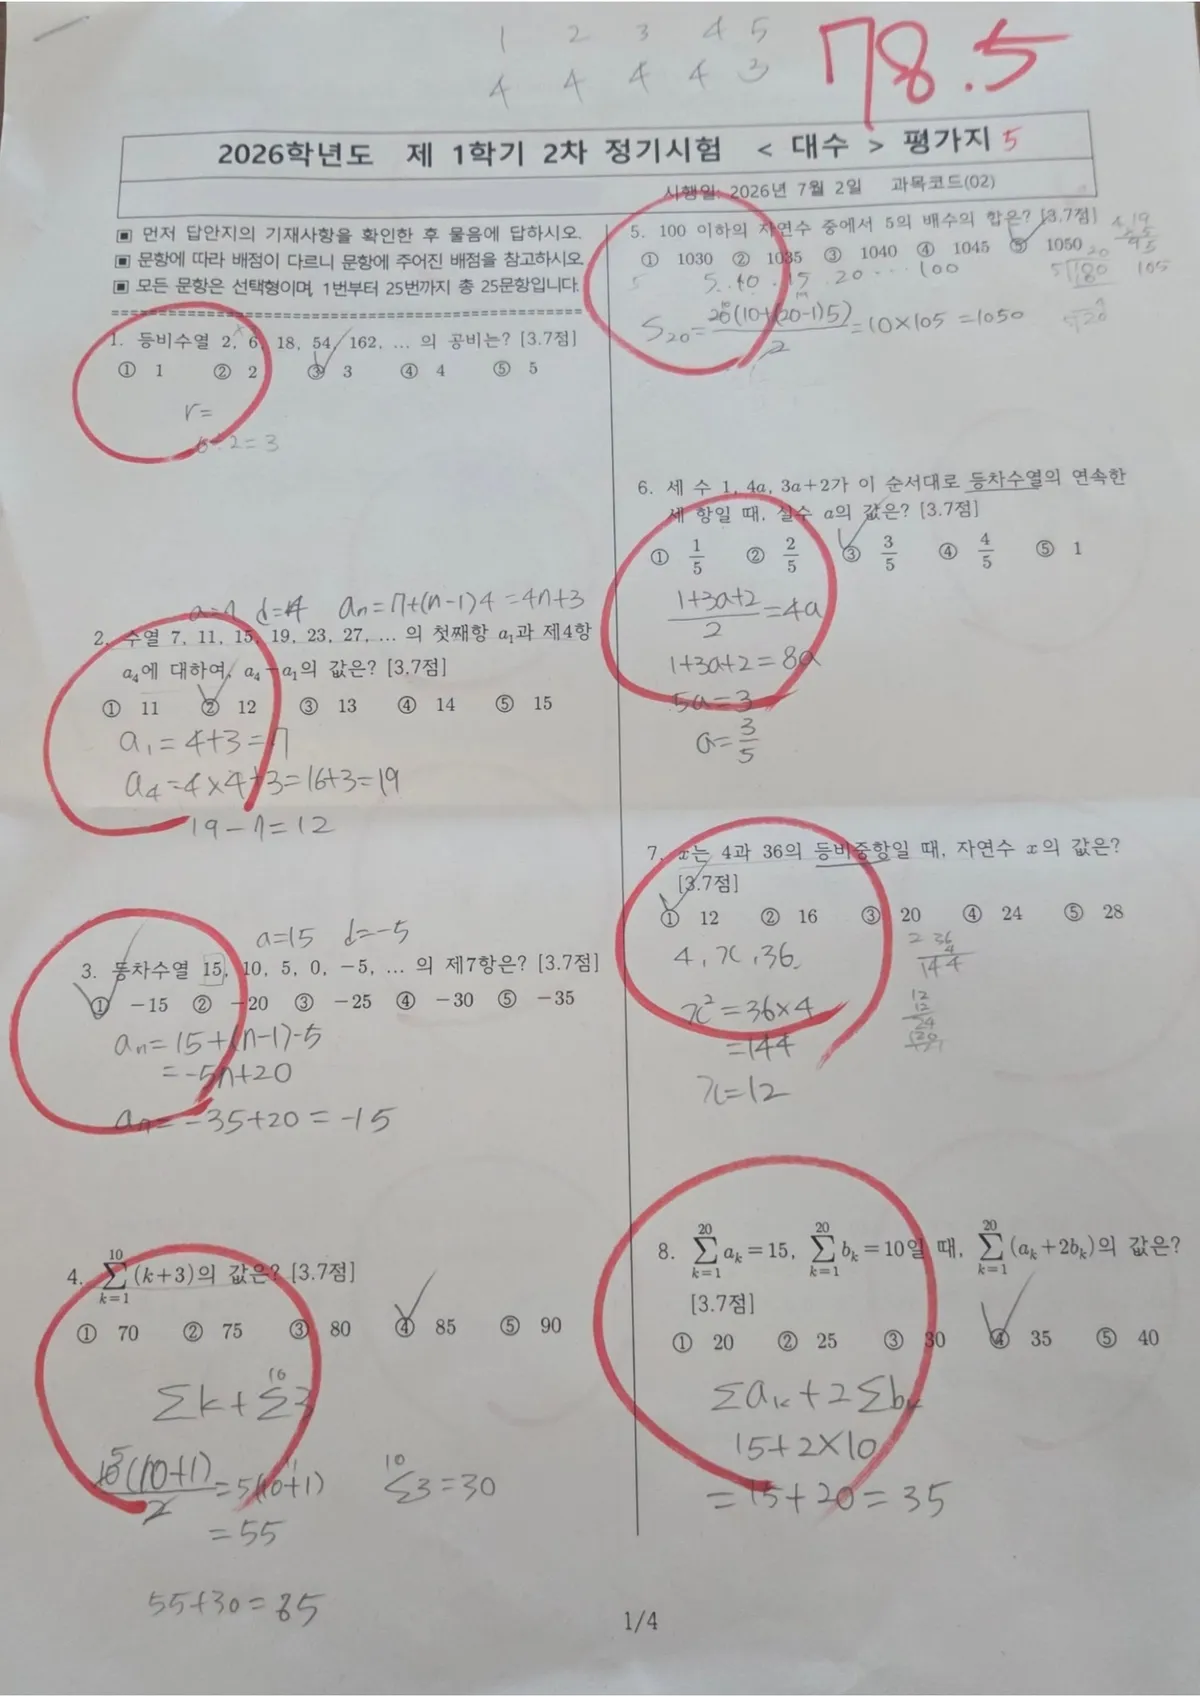 1 2 3 4 5
4 4 4 4 3
78.5
2026학년도 제 1학기 2차 정기시험 < 대수 > 평가지 5
시행일: 2026년 7월 2일 과목코드(02)
▣ 먼저 답안지의 기재사항을 확인한 후 물음에 답하시오.
▣ 문항에 따라 배점이 다르니 문항에 주어진 배점을 참고하시오.
▣ 모든 문항은 선택형이며, 1번부터 25번까지 총 25문항입니다.
1. 등비수열 2, 6, 18, 54, 162, … 의 공비는? [3.7점]
① 1 ② 2 ③ 3 ④ 4 ⑤ 5
r=
6÷2=3
a=7 d=4 aₙ=7+(n-1)4=4n+3
2. 수열 7, 11, 15, 19, 23, 27, … 의 첫째항 a₁과 제4항
a₄에 대하여, a₄-a₁의 값은? [3.7점]
① 11 ② 12 ③ 13 ④ 14 ⑤ 15
a₁=4+3=7
a₄=4×4+3=16+3=19
19-7=12
a=15 d=-5
3. 등차수열 15, 10, 5, 0, -5, … 의 제7항은? [3.7점]
① -15 ② -20 ③ -25 ④ -30 ⑤ -35
aₙ=15+(n-1)-5
=-5n+20
a₇=-35+20=-15
4. ∑_{k=1}^{10}(k+3)의 값은? [3.7점]
① 70 ② 75 ③ 80 ④ 85 ⑤ 90
∑k+∑^{10}3
10(10+1)/2=5(10+1) ∑^{10}3=30
=55
55+30=85
5. 100 이하의 자연수 중에서 5의 배수의 합은? [3.7점]
① 1030 ② 1035 ③ 1040 ④ 1045 ⑤ 1050
5. 10. 15. 20 … 100
S₂₀=20(10+(20-1)5)/2=10×105=1050
105
6. 세 수 1, 4a, 3a+2가 이 순서대로 등차수열의 연속한
세 항일 때, 실수 a의 값은? [3.7점]
① 1/5 ② 2/5 ③ 3/5 ④ 4/5 ⑤ 1
(1+3a+2)/2=4a
1+3a+2=8a
5a=3
a=3/5
7. x는 4과 36의 등비중항일 때, 자연수 x의 값은?
[3.7점]
① 12 ② 16 ③ 20 ④ 24 ⑤ 28
4, x, 36
x²=36×4
=144
x=12
2 36
4
144
12
12
24
8. ∑_{k=1}^{20}aₖ=15, ∑_{k=1}^{20}bₖ=10일 때, ∑_{k=1}^{20}(aₖ+2bₖ)의 값은?
[3.7점]
① 20 ② 25 ③ 30 ④ 35 ⑤ 40
∑aₖ+2∑bₖ
15+2×10
=15+20=35
1/4